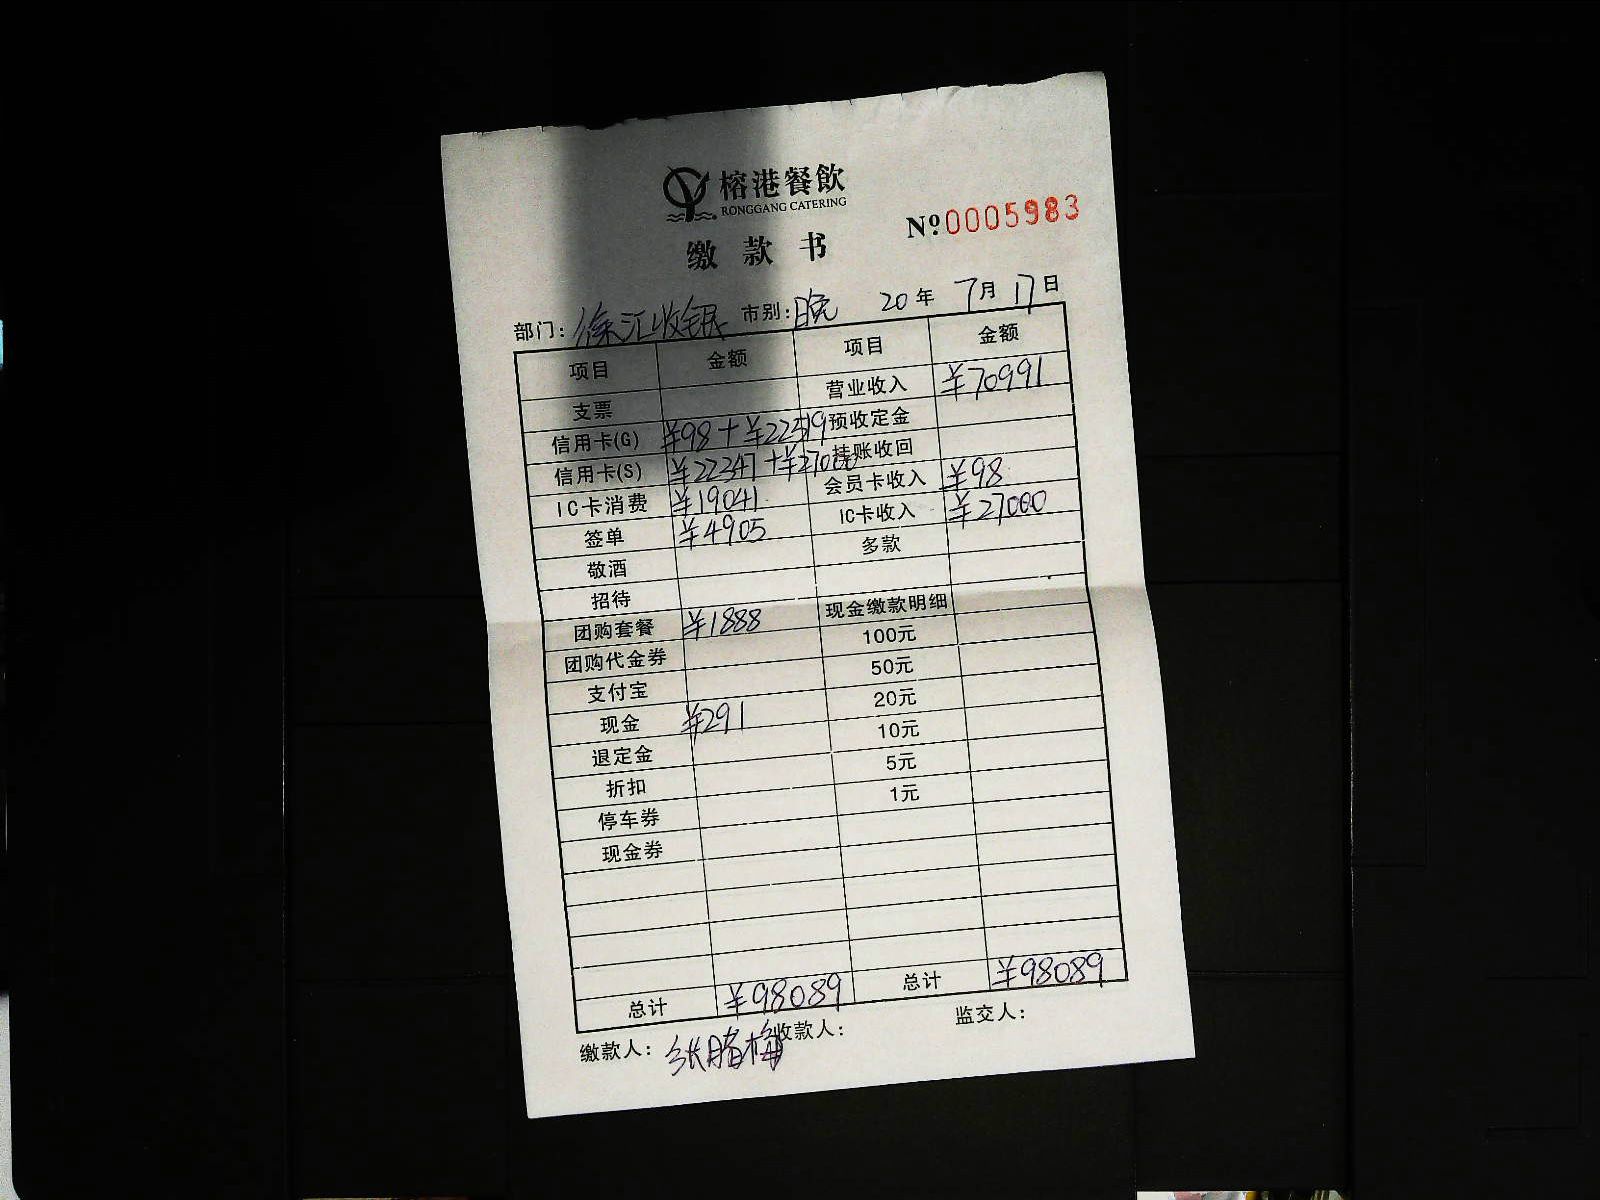 榕港餐飲
RONGGANG CATERING
缴款书 Nº 0005983
部门: 徐汇收银 市别: 晚 20年 7月 17日
项目 金额 项目 金额
支票 营业收入 ¥70991
信用卡(G) ¥98+¥22519 预收定金
信用卡(S) ¥22347+¥27000 挂账收回
IC卡消费 ¥19041 会员卡收入 ¥98
签单 ¥4905 IC卡收入 ¥27000
敬酒 多款
招待
团购套餐 ¥1888 现金缴款明细
团购代金券 100元
支付宝 50元
现金 ¥291 20元
退定金 10元
折扣 5元
停车券 1元
现金券
总计 ¥98089 总计 ¥98089
缴款人: 张 梅 收款人: 监交人: